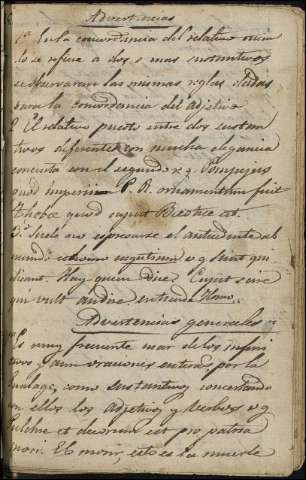 Advertencias
1ª En la concordancia del relativo cuando
lo se refiere a dos o mas sustantivos
se observaran las mismas reglas dadas
para la concordancia del adjetivo
2 El relativo puesto entre dos sustan
tivos diferentes con mucha elegancia
concierta con el segundo v g Pompejus
quod imperii P. R. ornamentum fuit
Thebæ quod caput Beotiæ est.
3ª Suele no espresarse el antecedente al
v g Sunt qui
dicant. Hay quien dice Cupit scire
qui vult audire entiende Homo.
Advertencias generales
Es muy frecuente usar de los infini
tivos y aun oraciones enteras, por la
como sustantivos concertando
con ellos los adjetivos y verbos v g
Pulchre et decorum est pro patria
mori. El morir, esto es la muerte